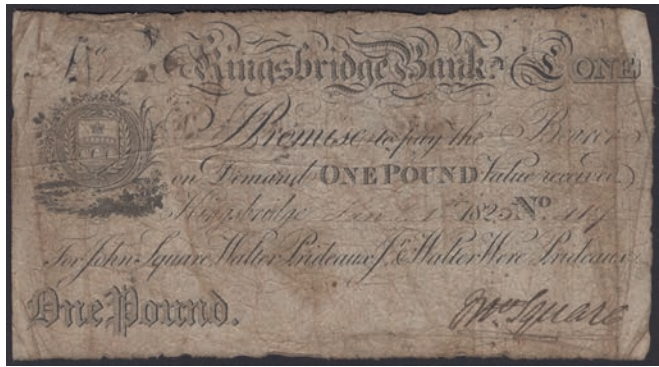 Kingsbridge Bank. £ ONE
I Promise to pay the Bearer
on Demand ONE POUND Value received
Kingsbridge 1825 No
For John Square, Walter Prideaux Jr. & Walter Were Prideaux.
One Pound. Jno. Square